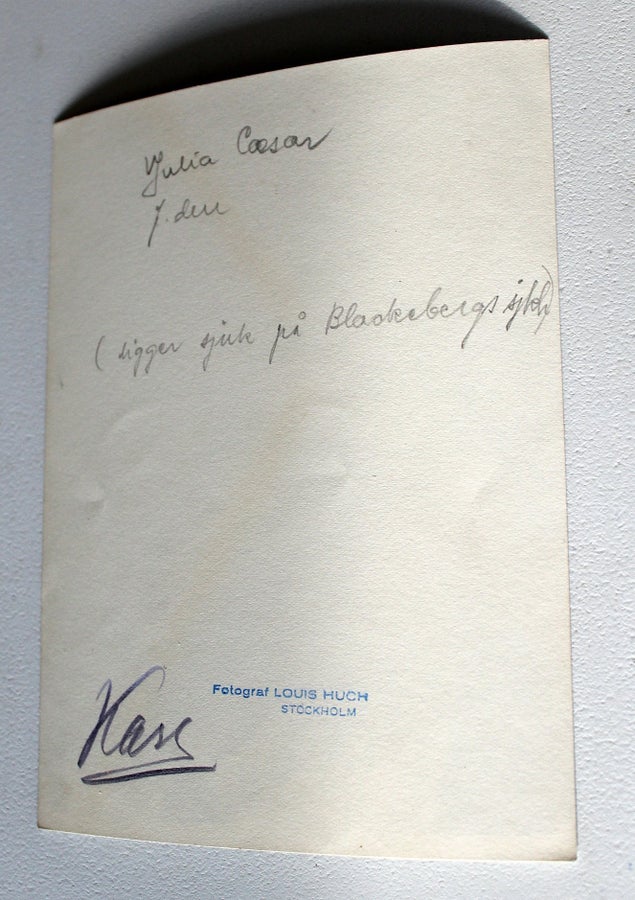 Julia Cæsar
(ligger sjuk på Blackebergs sjkh)
Fotograf LOUIS HUCH
STOCKHOLM